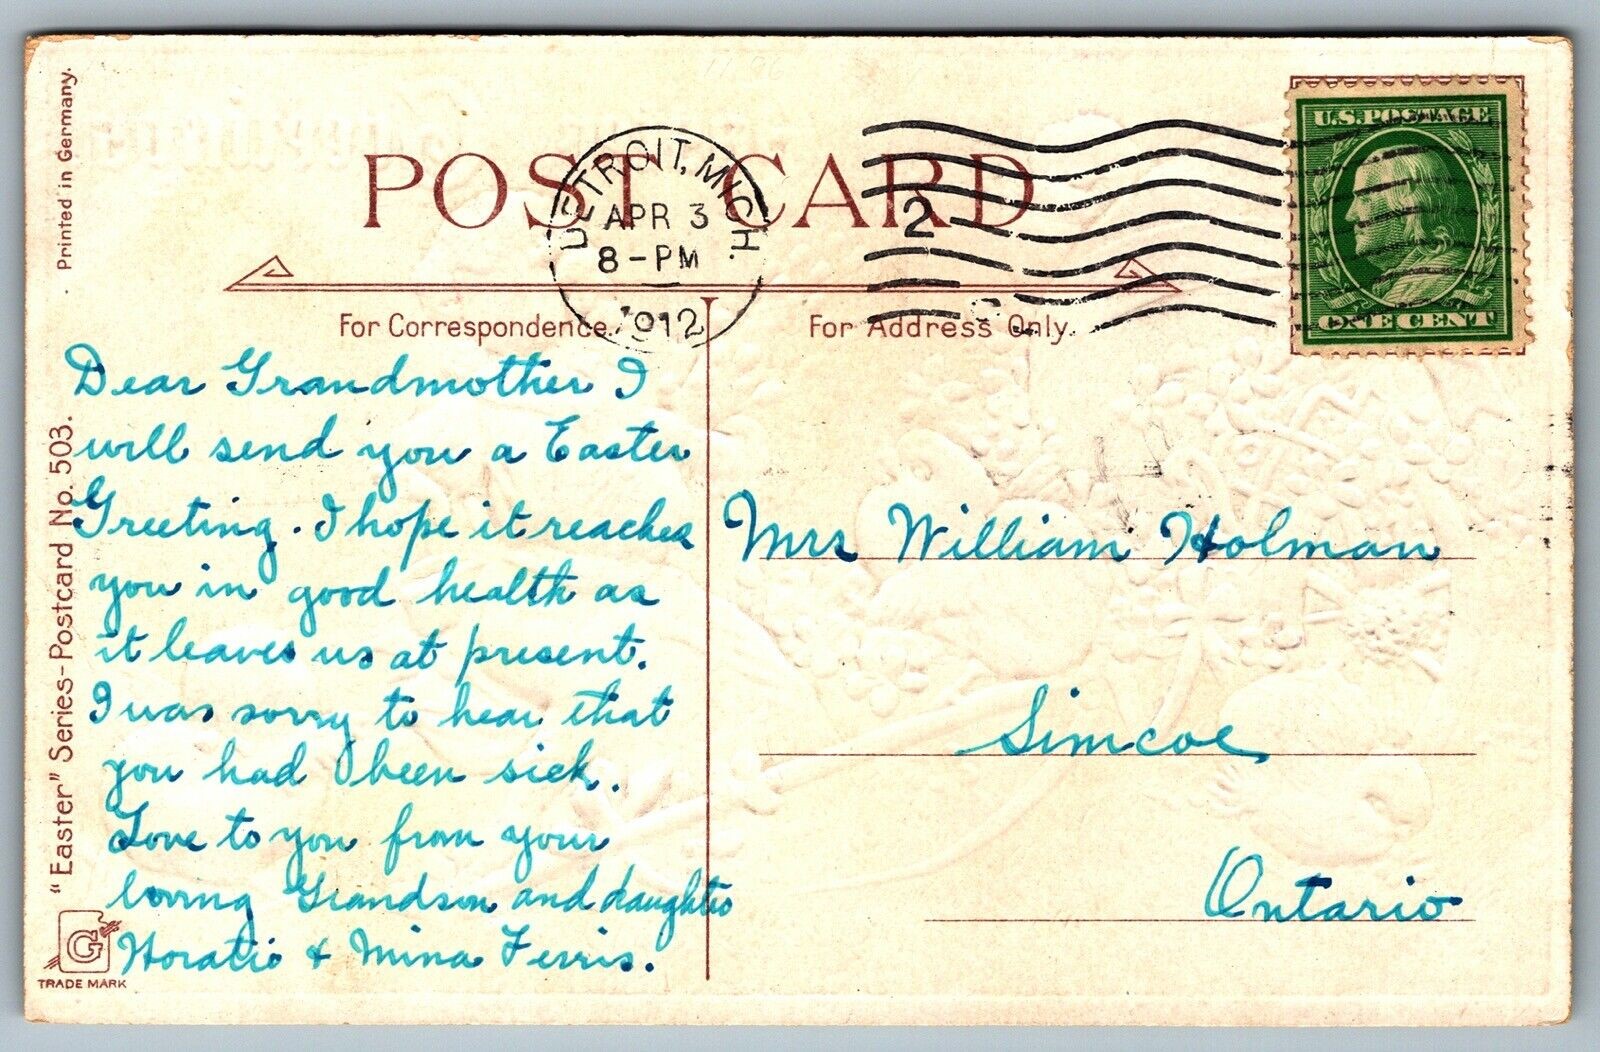 Printed in Germany.
POST CARD
DETROIT, MICH.
APR 3
8-PM
1912
2
U.S. POSTAGE
ONE CENT
For Correspondence.
For Address Only.
Dear Grandmother I
will send you a Easter
Greeting. I hope it reaches
you in good health as
it leaves us at present.
I was sorry to hear that
you had been sick.
Love to you from your
loving Grandson and daughter
Horatio & Mina Ferris.
Mrs William Holman
Simcoe
Ontario
"Easter" Series-Postcard No. 503.
G
TRADE MARK